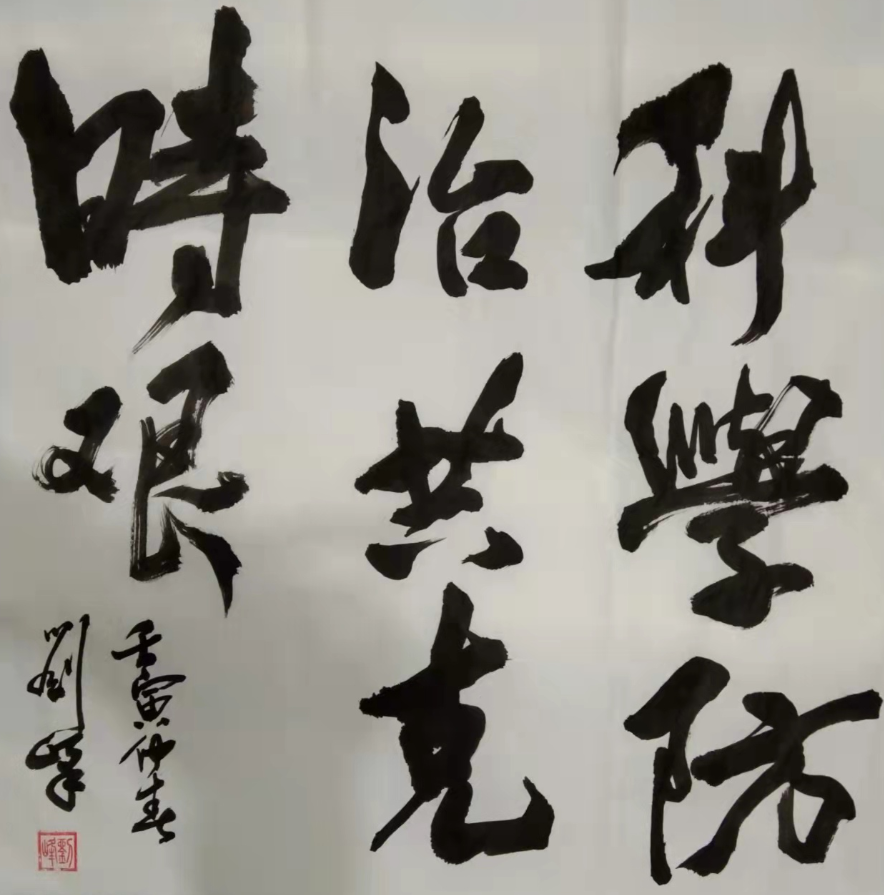 科學防
治共克
時艱
壬寅仲春
劉峰
劉峰